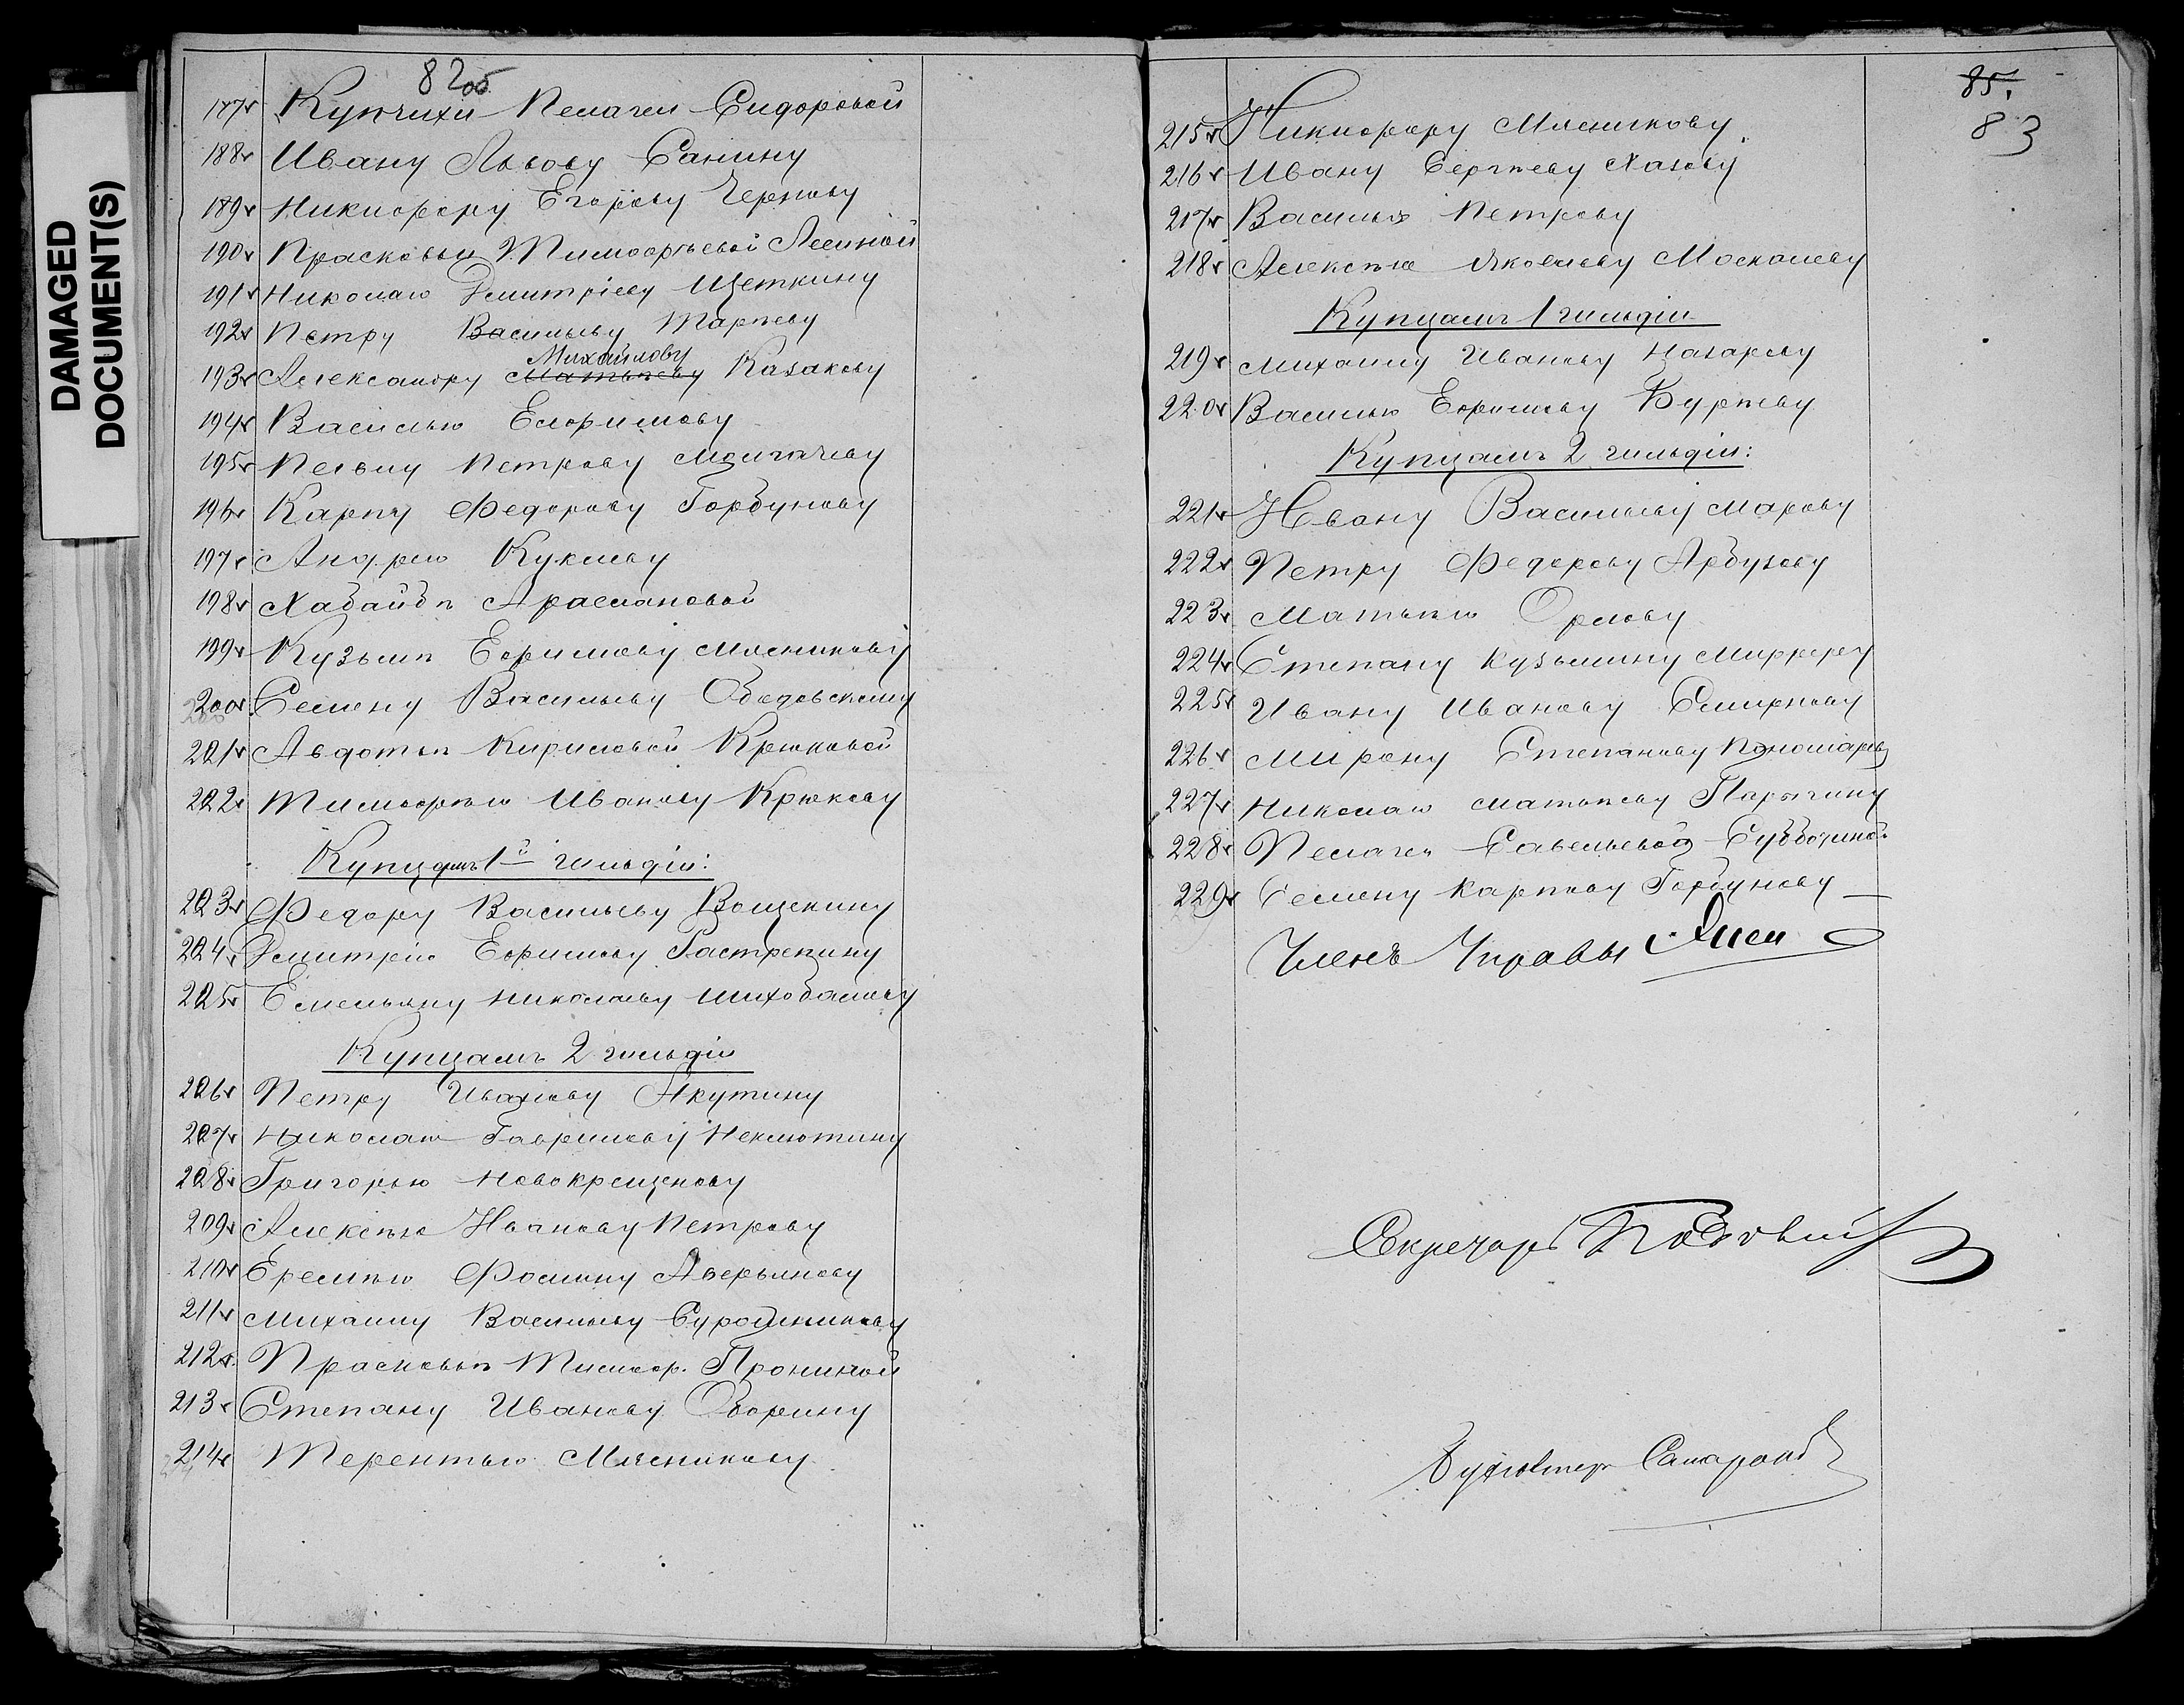 DAMAGED
DOCUMENT(S)
82об
187 Купчихи Пелагеи Сидоровой
188 Ивану Львову Санину
189 Никифору Егорову Чернову
190 Прасковьи Тимофѣевой Лениной
191 Николаю Дмитріеву Щеткину
192 Петру Васильеву Тарѣеву
Михайлову
193 Александру Матвѣеву Казакову
194 Василью Ефимову
195 Петру Молгачеву
196 Карпу Федорову Горбунову
197 Андрею Куклеву
198 Хабайбѣ Арслановой
199 Кузьмѣ Ефимову Мясникову
200 Семену Васильеву Ободовскому
201 Авдотьѣ Кириловой Крюковой
202 Тимофѣю Иванову Крюкову
Купцамъ 1й гильдіи:
203 Федору Васильеву Вощекину
204 Дмитрію Ефимову Растрепину
205 Емельяну Николаеву Шихобалову
Купцамъ 2 гильдіи
206 Петру Иванову Якутину
207 Николаю Гаврилову Неклютину
208 Григорью Новокрещенову
209 Алексѣю Иванову Петрову
210 Еремѣю Фомину Аверьянову
211 Михаилу Васильеву Сурошникову
212 Прасковьѣ Тимоф. Прониной
213 Степану Иванову Оборину
214 Терентью Мясникову
85.
83
215 Никифору Мясникову.
216 Ивану Сергѣеву Хазову
217 Василью Петрову
218 Алексѣю Яковлеву Москалеву
Купцамъ 1 гильдіи
219 Михаилу Иванову Назарову
220 Василью Ефимову Бурѣеву
Купцамъ 2 гильдіи:
221 Ивану Васильеву Марову
222 Петру Федорову Арбузову
223 Матвѣю Орлову
224 Степану Кузьмину
225 Ивану Иванову Смирнову
226 Мирону Степанову Пономареву
227 Николаю Матвѣеву Парыгину
228 Пелагеи Савельевой Субботиной
229 Семену Карпову Горбунову
Членъ Управы
Секретарь
Бухгалтеръ